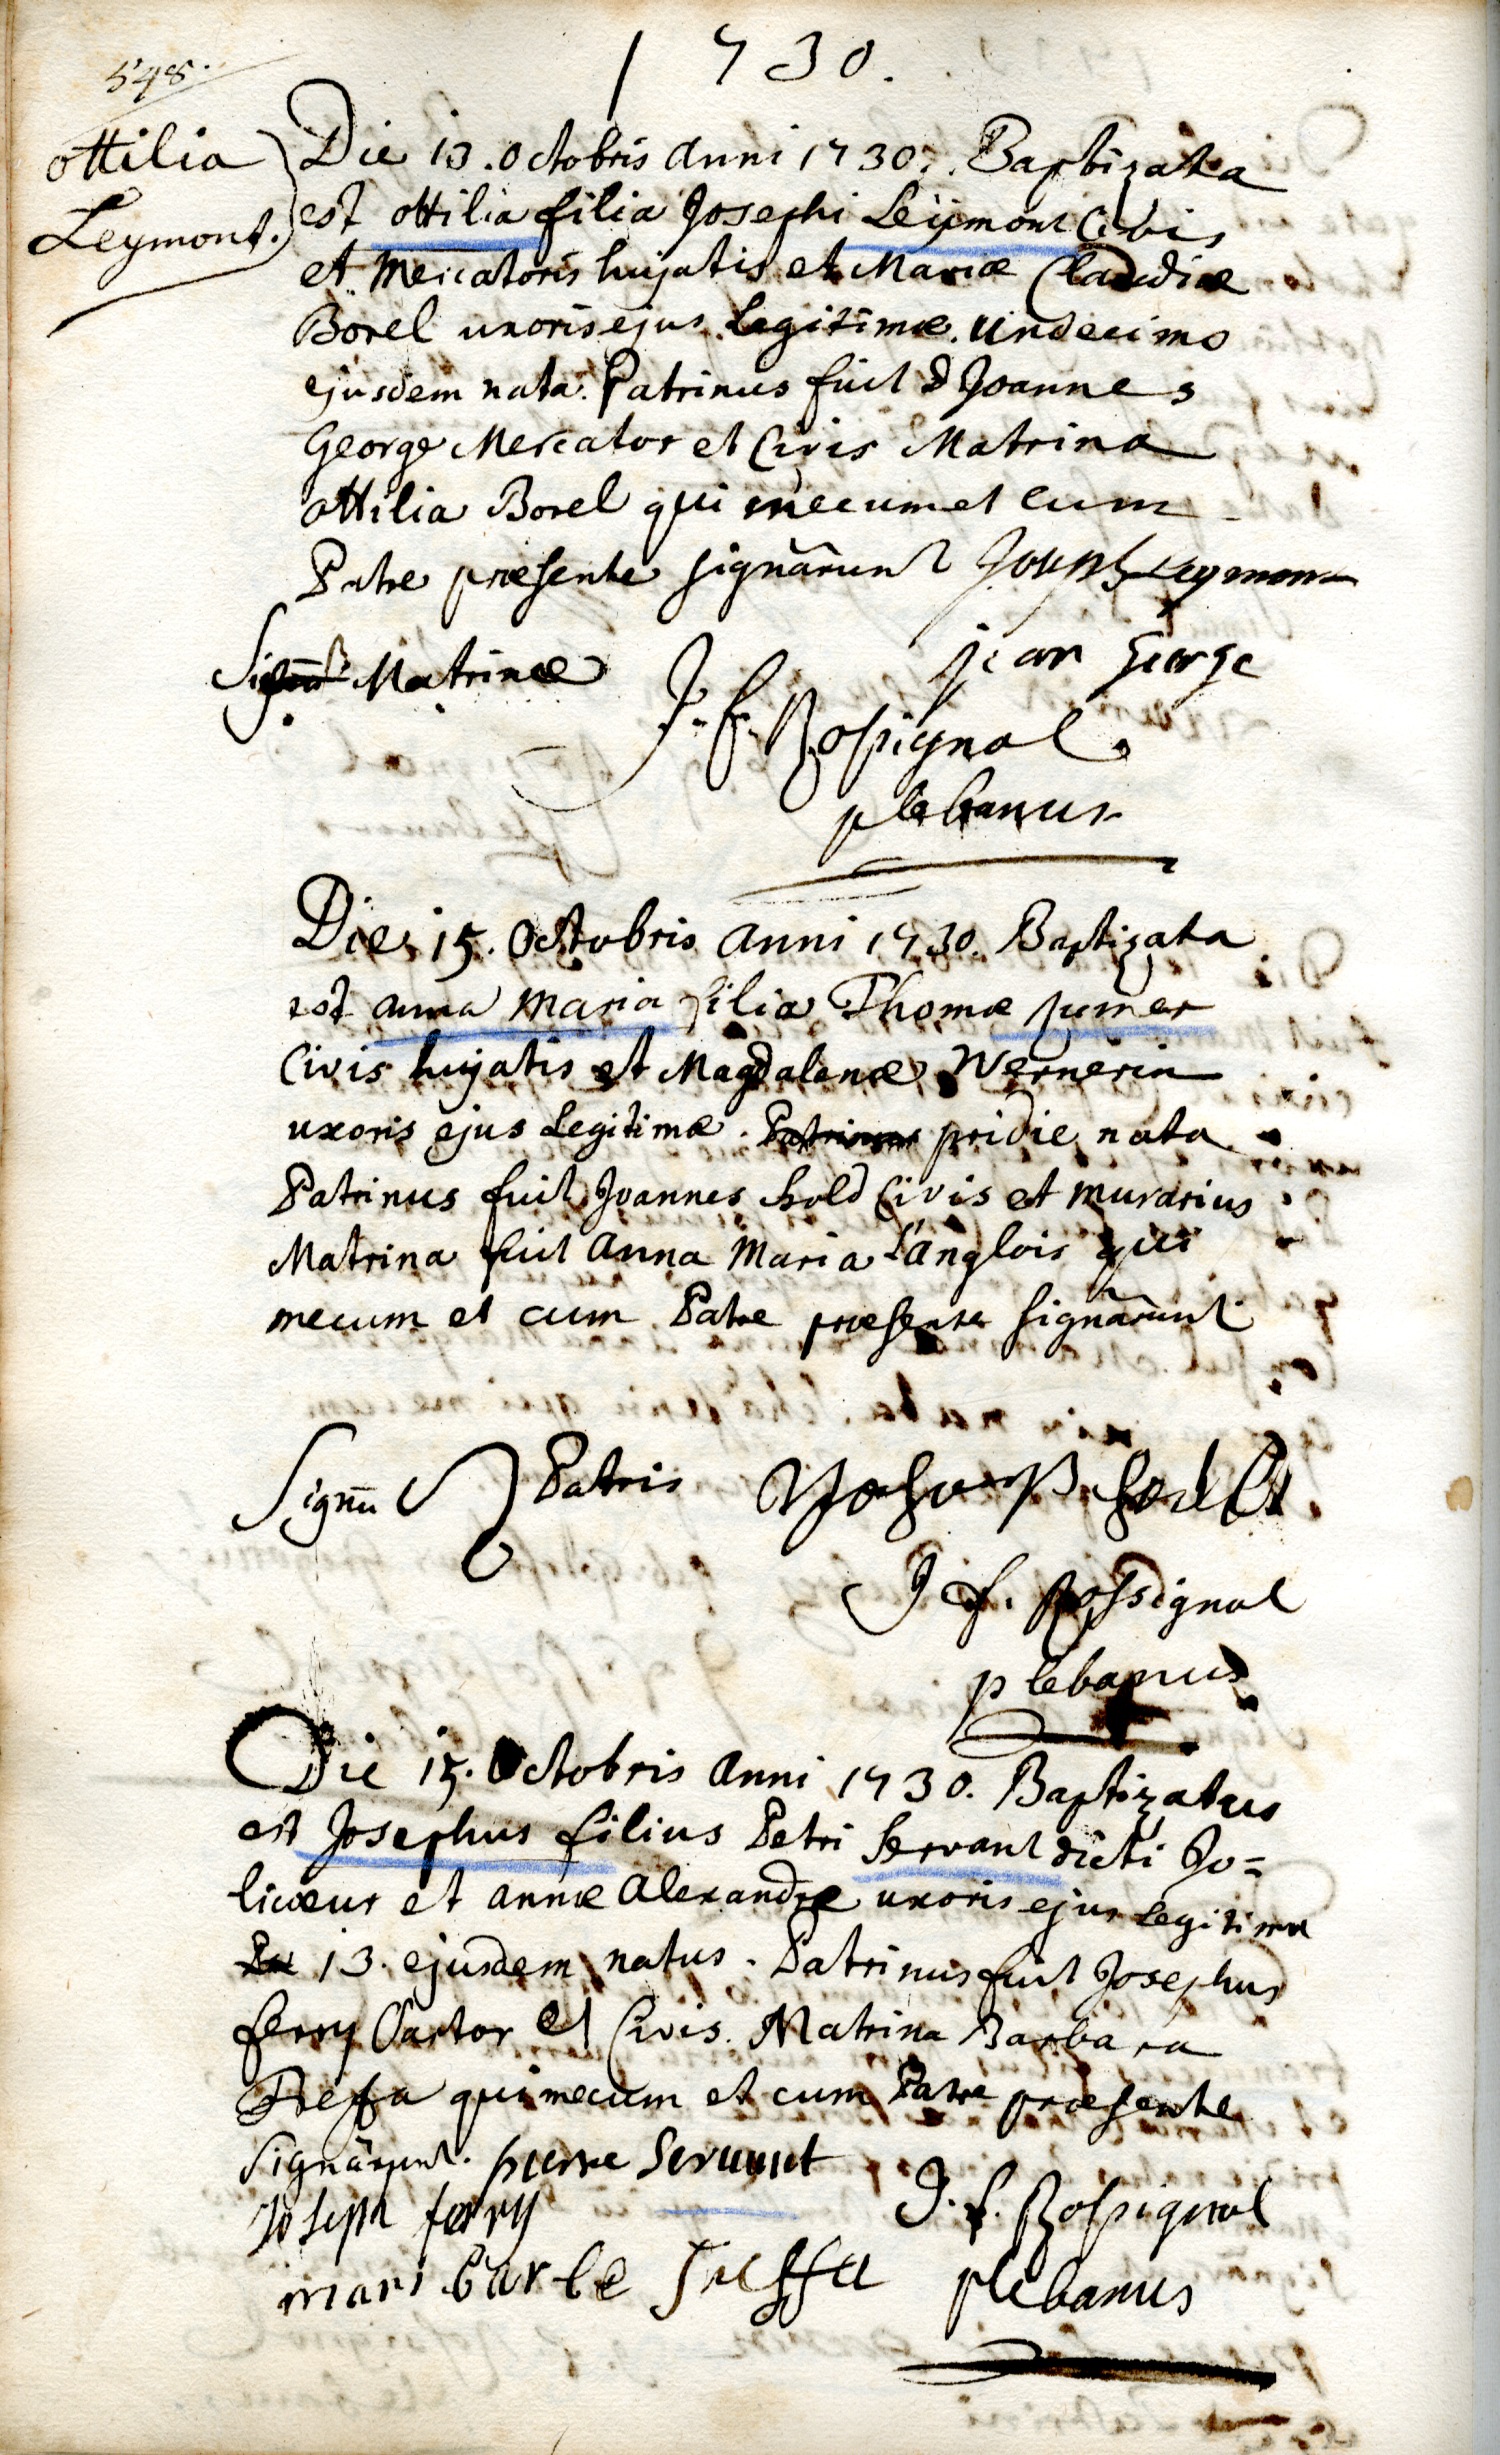 1730.
548.
Ottilia
Leymont.
Die 13. Octobris anni 1730. Baptizata
est ottilia filia Josephi Leÿmont Civis
et Mercatoris hujatis et Mariæ Claudiæ
Borel uxoris ejus Legitimæ. Undecimo
ejusdem nata. Patrinus fuit D Joannes
George Mercator et Civis Matrina
ottilia Borel qui mecum et cum
Patre præsente signârunt Joseph Leymont
Matrinæ
jean George
J. f. Rossignol
plebanus
Die 15. Octobris anni 1730. Baptizata
est anna Maria filia Thomæ
Civis hujatis et Magdalenæ Wernerin
uxoris ejus Legitimæ. Patrinus pridie nata
Patrinus fuit Joannes hold Civis et murarius
Matrina fuit anna Maria L'anglois qui
mecum et cum Patre præsente signârunt
Signū Patris
J f. Rossignol
plebanus
Die 15. Octobris anni 1730. Baptizatus
est Josephus filius Petri Servant dicti Jo=
licœur et annæ Alexandre uxoris ejus Legitimæ
13. ejusdem natus. Patrinus fuit Josephus
ferry Sartor et Civis. Matrina Barbara
Treffa qui mecum et cum Patre præsente
signârunt. pierre Servant
Joseph ferry
J. f. Rossignol
mari barbe Treffa plebanus